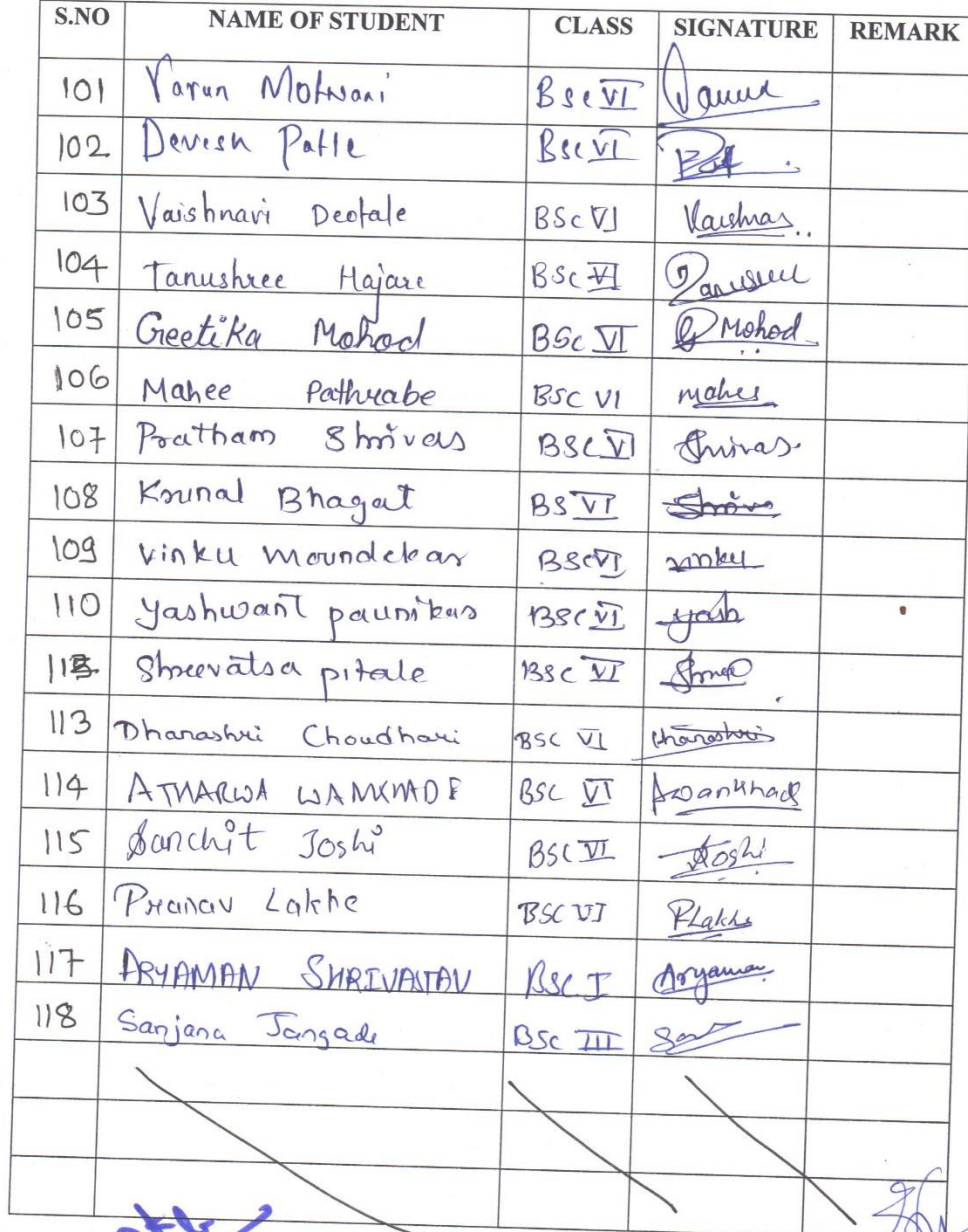 S.NO NAME OF STUDENT CLASS SIGNATURE REMARK
101 Varun Motwani BSc VI
102 Devesh Patle BSc VI
103 Vaishnavi Deotale BSc VI Vaishnav
104 Tanushree Hajare BSc VI Tanushree
105 Geetika Mohod BSc VI G Mohod
106 Mahee Pathrabe BSC VI mahee
107 Pratham Shrivas BSC VI Shrivas
108 Krunal Bhagat BS VI
109 Vinku Moundekar BSC VI vinku
110 Yashwant paunikar BSC VI yash
Shreevatsa pitale BSC VI Shree
113 Dhanashri Choudhari BSC VI Dhanashri
114 ATHARWA WANKHADE BSC VI Awankhade
115 Sanchit Joshi BSC VI Joshi
116 Pranav Lakhe BSC VI PLakhe
117 ARYAMAN SHRIVASTAV BSC I Aryaman
118 Sanjana Jangade BSC III